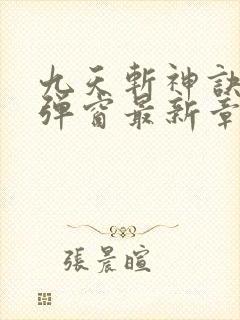 九天斬神訣
彈窗最新章
張晨暄